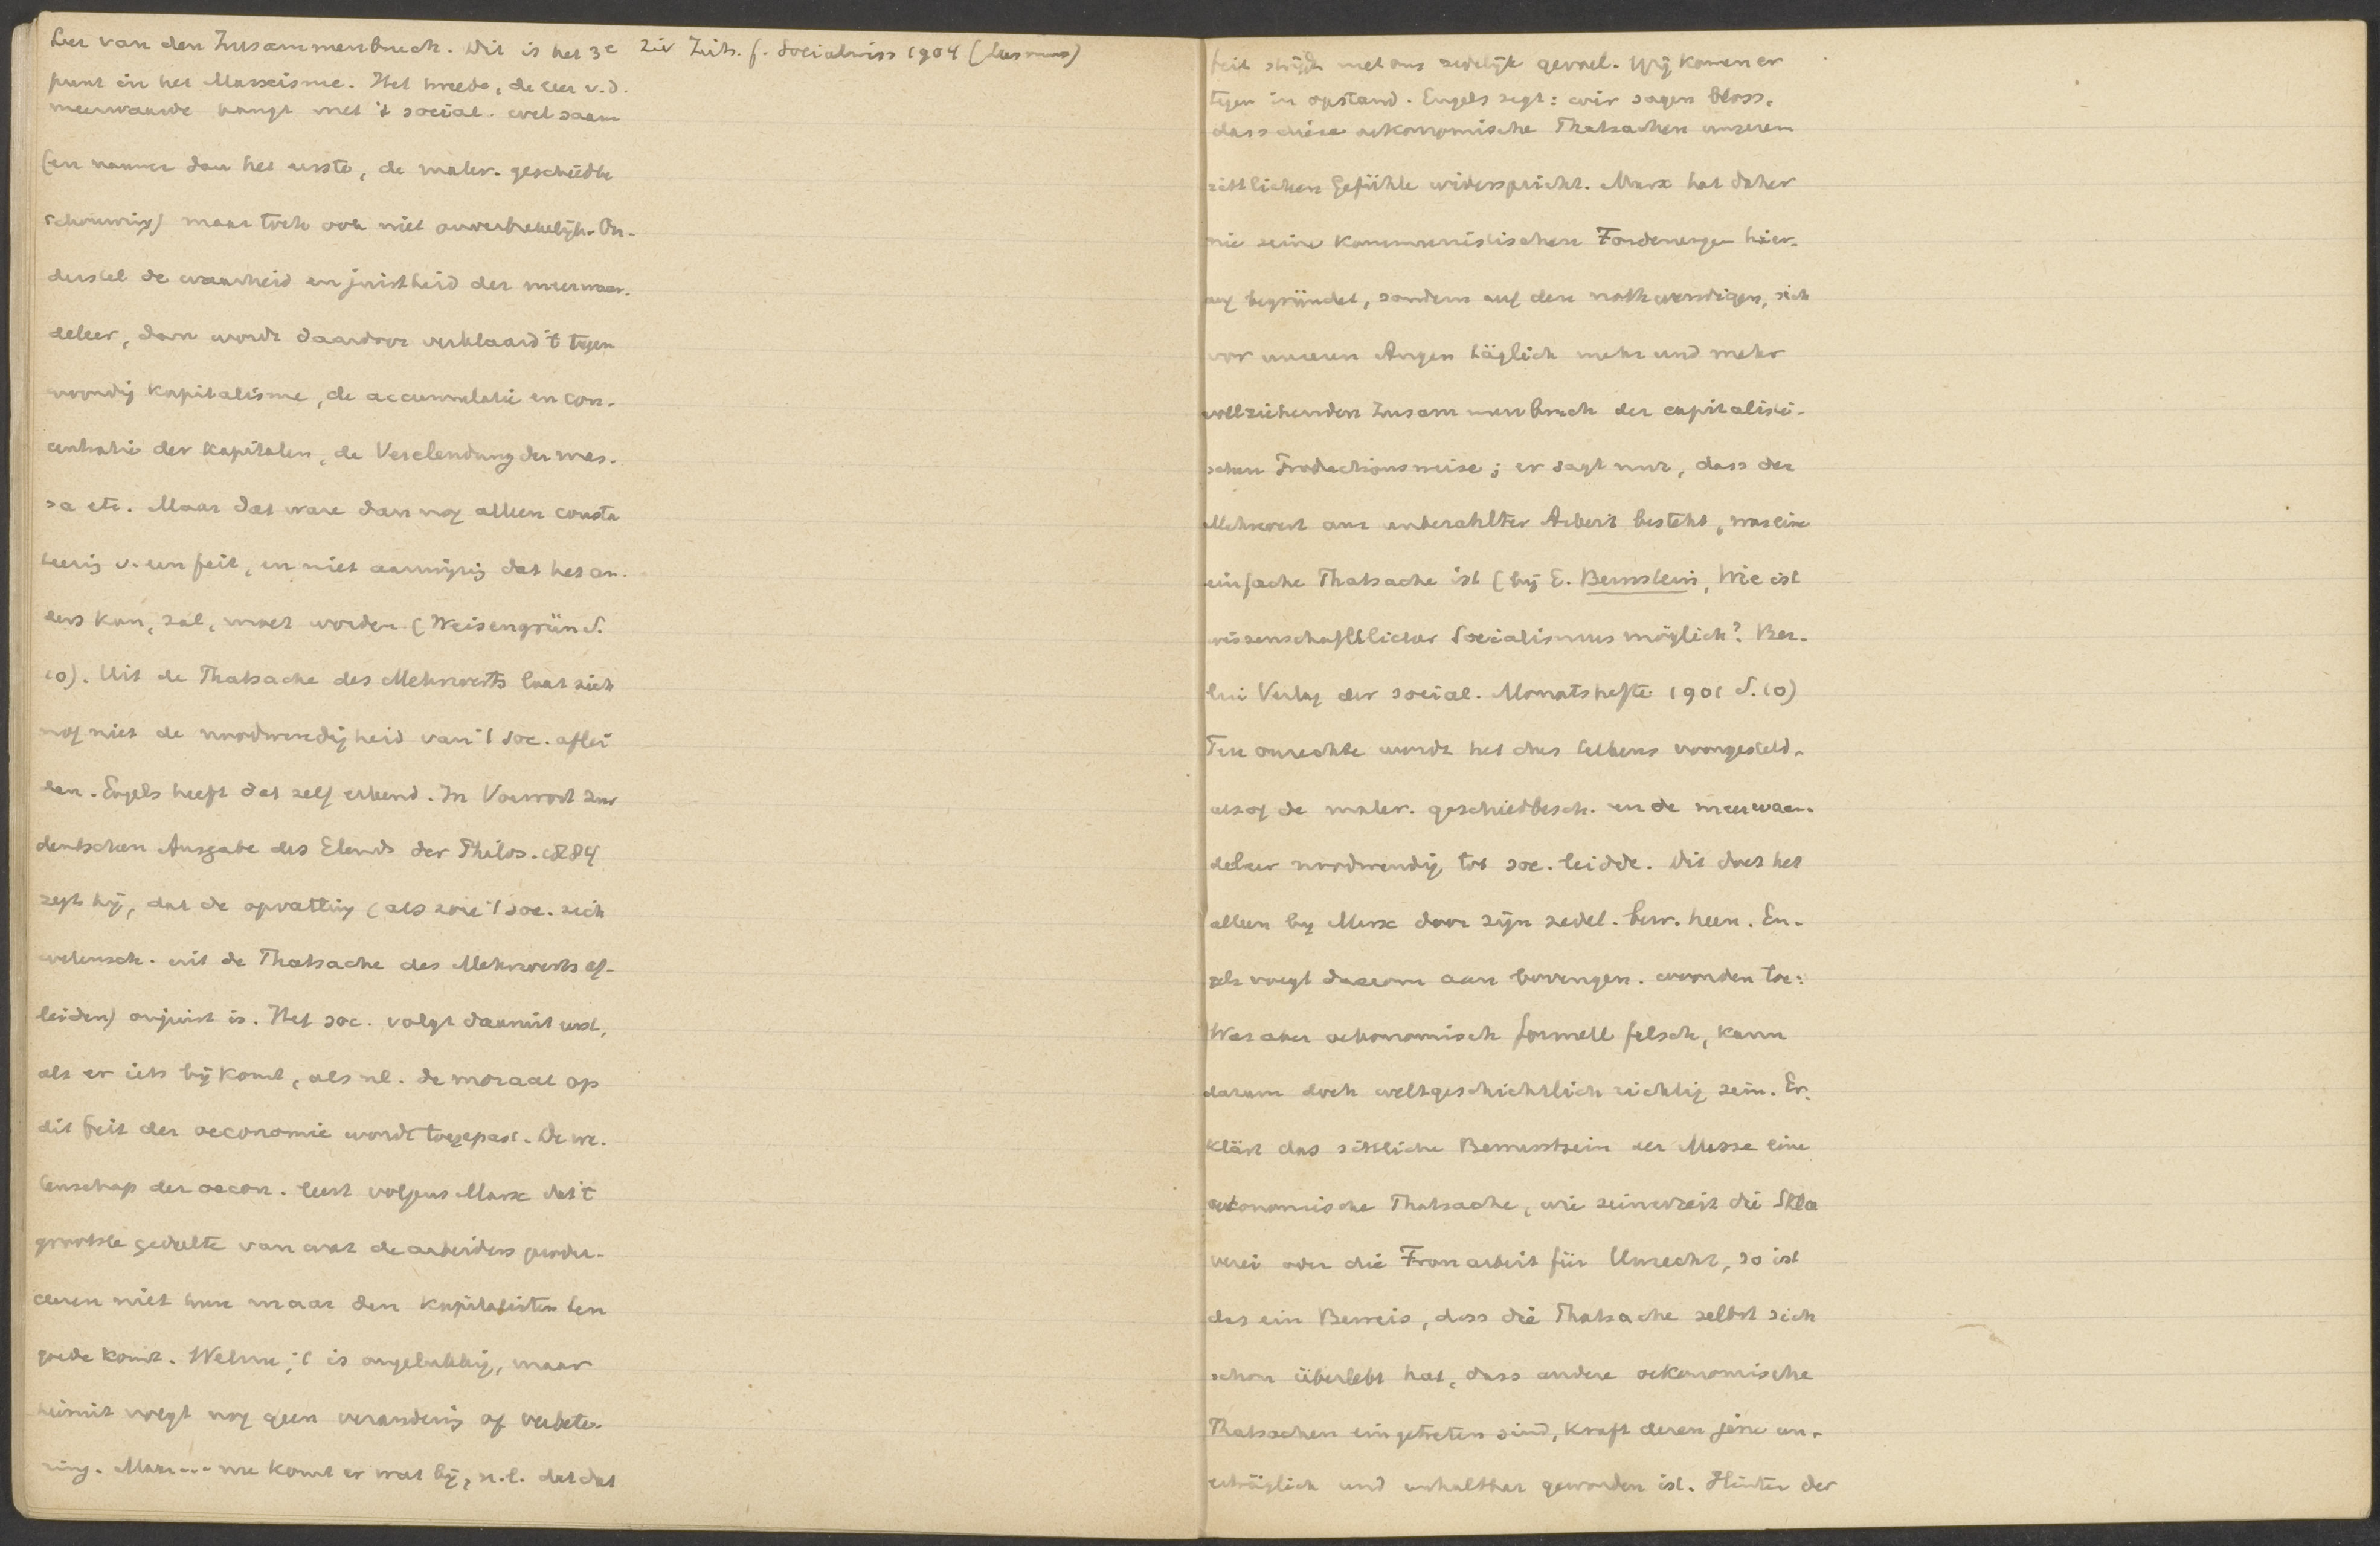 Leer van den Zusammenbruch. Dit is het 3e
punt in het Marxisme. Het tweede, de leer v.d.
meerwaarde hangt met 't social. wel saam
(en nauwer dan het eerste, de mater. geschiedbe
schouwing) maar toch ook niet onverbrekelijk. On-
derstel de waarheid en juistheid der meerwaar-
deleer, dan wordt daardoor verklaard 't tegen
woordig kapitalisme, de accumulatie en con-
centratie der kapitalen, de Verelendung der mas-
sa etc. Maar dat ware dan nog alleen consta
teering v. een feit, en niet aanwijzing dat het an-
ders kan, zal, moet worden (Weisengrün S.
10). Uit de Thatsache des Mehrwerts laat zich
nog niet de noodwendigheid van 't soc. aflei
den. Engels heeft dat zelf erkend. In Vorwort zur
deutschen Ausgabe des Elends der Philos. 1884
zegt hij, dat de opvatting (als zou 't soc. zich
wetensch. uit de Thatsache des Mehrwerts af-
leiden) onjuist is. Het soc. volgt daaruit eerst,
als er iets bij komt, als nl. de moraal op
dit feit der oeconomie wordt toegepast. De we-
tenschap der oecon. leert volgens Marx dat 't
grootste gedeelte van wat de arbeiders produ-
ceeren niet hun maar den kapitalisten ten
goede komt. Welnu, 't is ongelukkig, maar
hieruit volgt nog geen verandering of verbete-
ring. Maar... nu komt er wat bij, n.l. dat dat
Zie Zeits. f. Socialwiss 1904 (Lesmus)
feit strijdt met ons zedelijk gevoel. Wij komen er
tegen in opstand. Engels zegt: wir sagen bloss,
dass diese oekonomische Thatsachen unserem
sittlichen Gefühle widerspricht. Marx hat daher
nie seine kommunistischen Forderungen hier-
auf begründet, sondern auf den nothwendigen, sich
vor unseren Augen täglich mehr und mehr
vollziehenden Zusammenbruch der capitalisti-
schen Productionsweise; er sagt nur, dass der
Mehrwert aus unbezahlter Arbeit besteht, was eine
einfache Thatsache ist (bij E. Bernstein, Wie ist
wissenschaftlicher Socialismus möglich? Ber-
lin Verlag der social. Monatshefte 1901 S. 10)
Ten onrechte wordt het dus telkens voorgesteld,
alsof de mater. geschiedbesch. en de meerwaar-
deleer noodwendig tot soc. leidde. Dit doet het
alleen bij Marx door zijn zedel. bew. heen. En-
gels voegt daarom aan bovengen. woorden toe:
Was aber oekonomisch formell falsch, kann
darum doch weltgeschichtlich richtig sein. Er-
klärt das sittliche Bewusstsein der Masse eine
oekonomische Thatsache, wie seinerzeit die Skla
verei oder die Fronarbeit für Unrecht, so ist
das ein Beweis, dass die Thatsache selbst sich
schon überlebt hat, dass andere oekonomische
Thatsachen eingetreten sind, kraft deren jene un-
erträglich und unhaltbar geworden ist. Hinter der